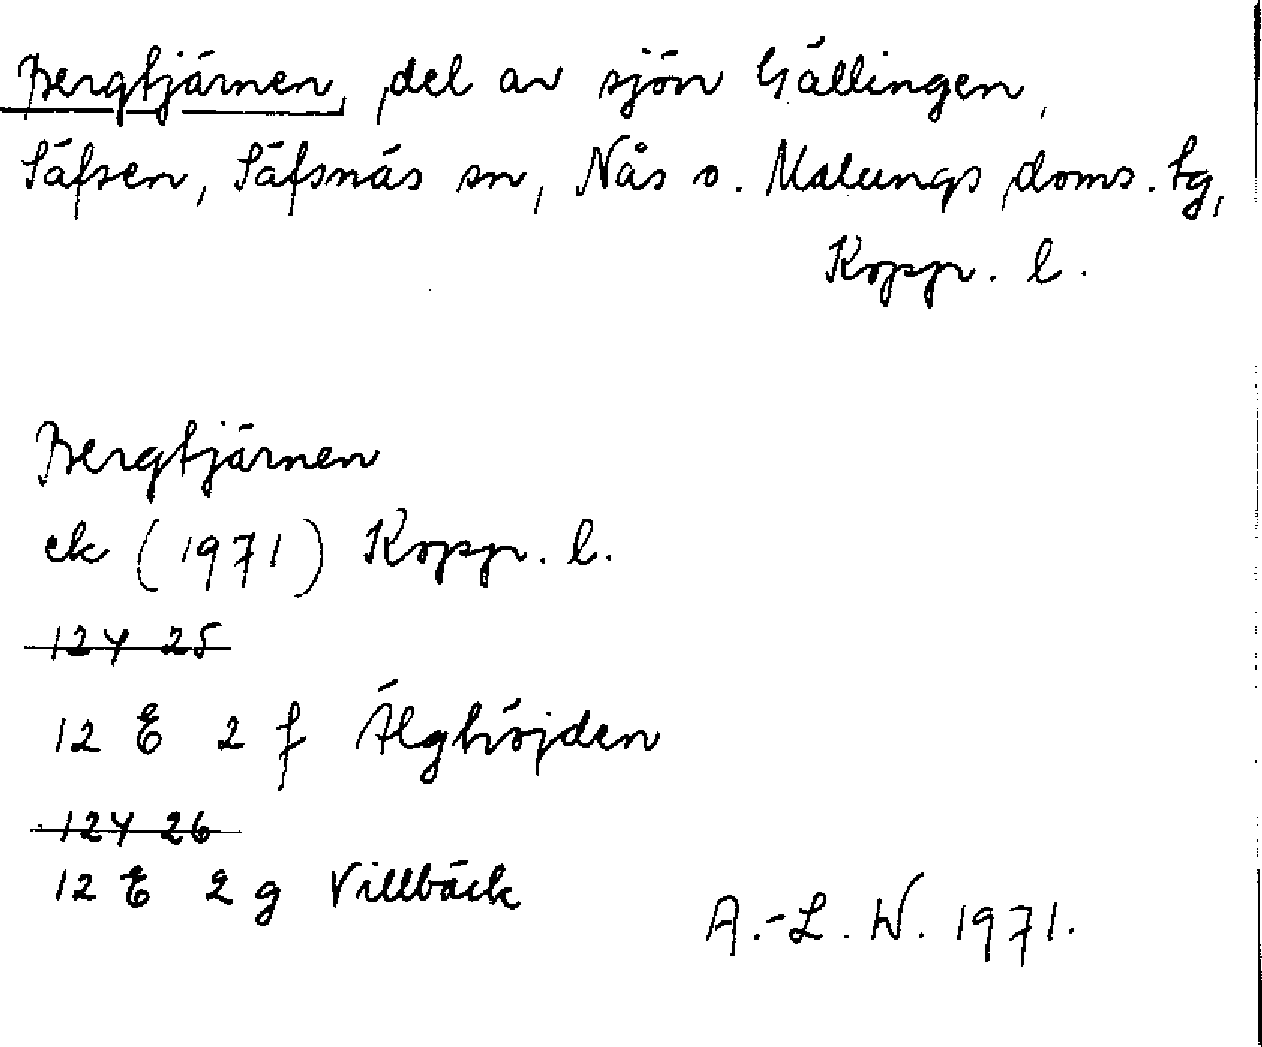 Bergtjärnen, del av sjön Gällingen,
Säfsen, Säfsnäs sn, Nås o. Malungs doms. tg,
Kopp. l.
Bergtjärnen
ek (1971) Kopp. l.
124 25
12 E 2 f Älghöjden
124 26
12 E 2 g Villbäck
A.-L. W. 1971.